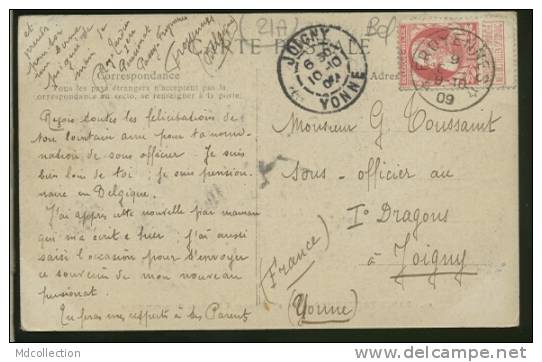 (21A)
CARTE POSTALE
Correspondance
Adres
Tous les pays étrangers n'acceptent pas la
correspondance au recto, se renseigner à la poste.
JOIGNY
YONNE
09
Reçois toutes les félicitations de
ton lointain ami pour ta nomi-
nation de sous officier. Je suis
bien loin de toi ; je suis pension-
naire en Belgique.
J'ai appris cette nouvelle par maman
qui m'a écrit hier ; j'ai aussi
saisi l'occasion pour t'envoyer
ce souvenir de mon nouveau
pensionat.
Tu feras mes respects à tes Parents
Monsieur G Toussaint
Sous-officier au
1º Dragons
à Joigny
(Yonne)
(France)
MDcollection
www.delcampe.net